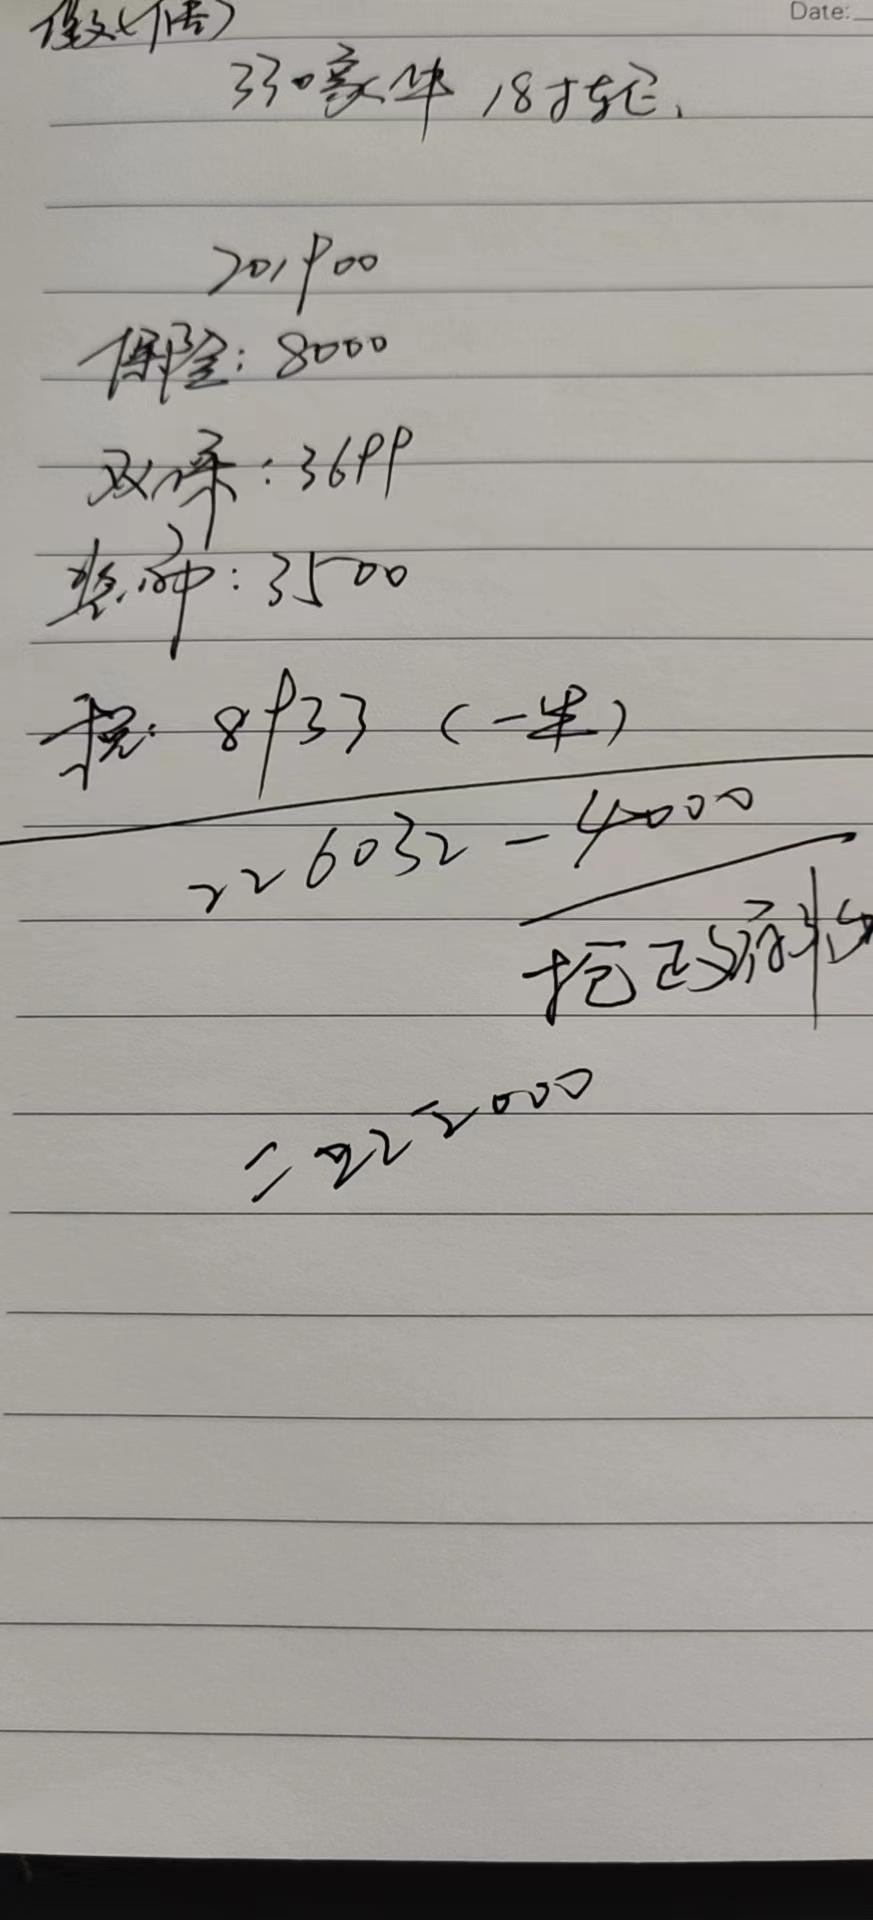 Date:
330豪华 18寸轮
201900
保险: 8000
双保: 3699
3500
税: 8933 (一半)
226032 - 4000
抢政府补
=222000